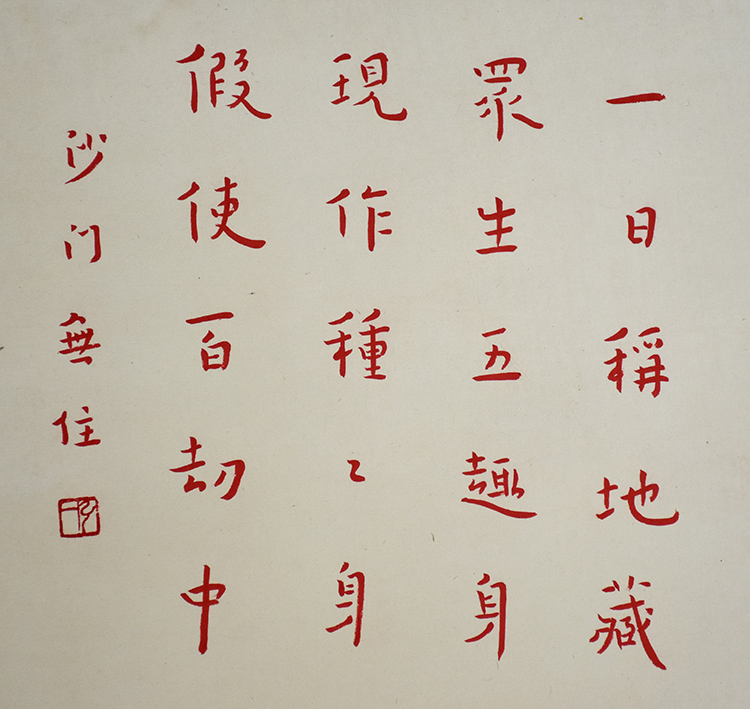 一日稱地藏
眾生五趣身
現作種々身
假使百劫中
沙门無住